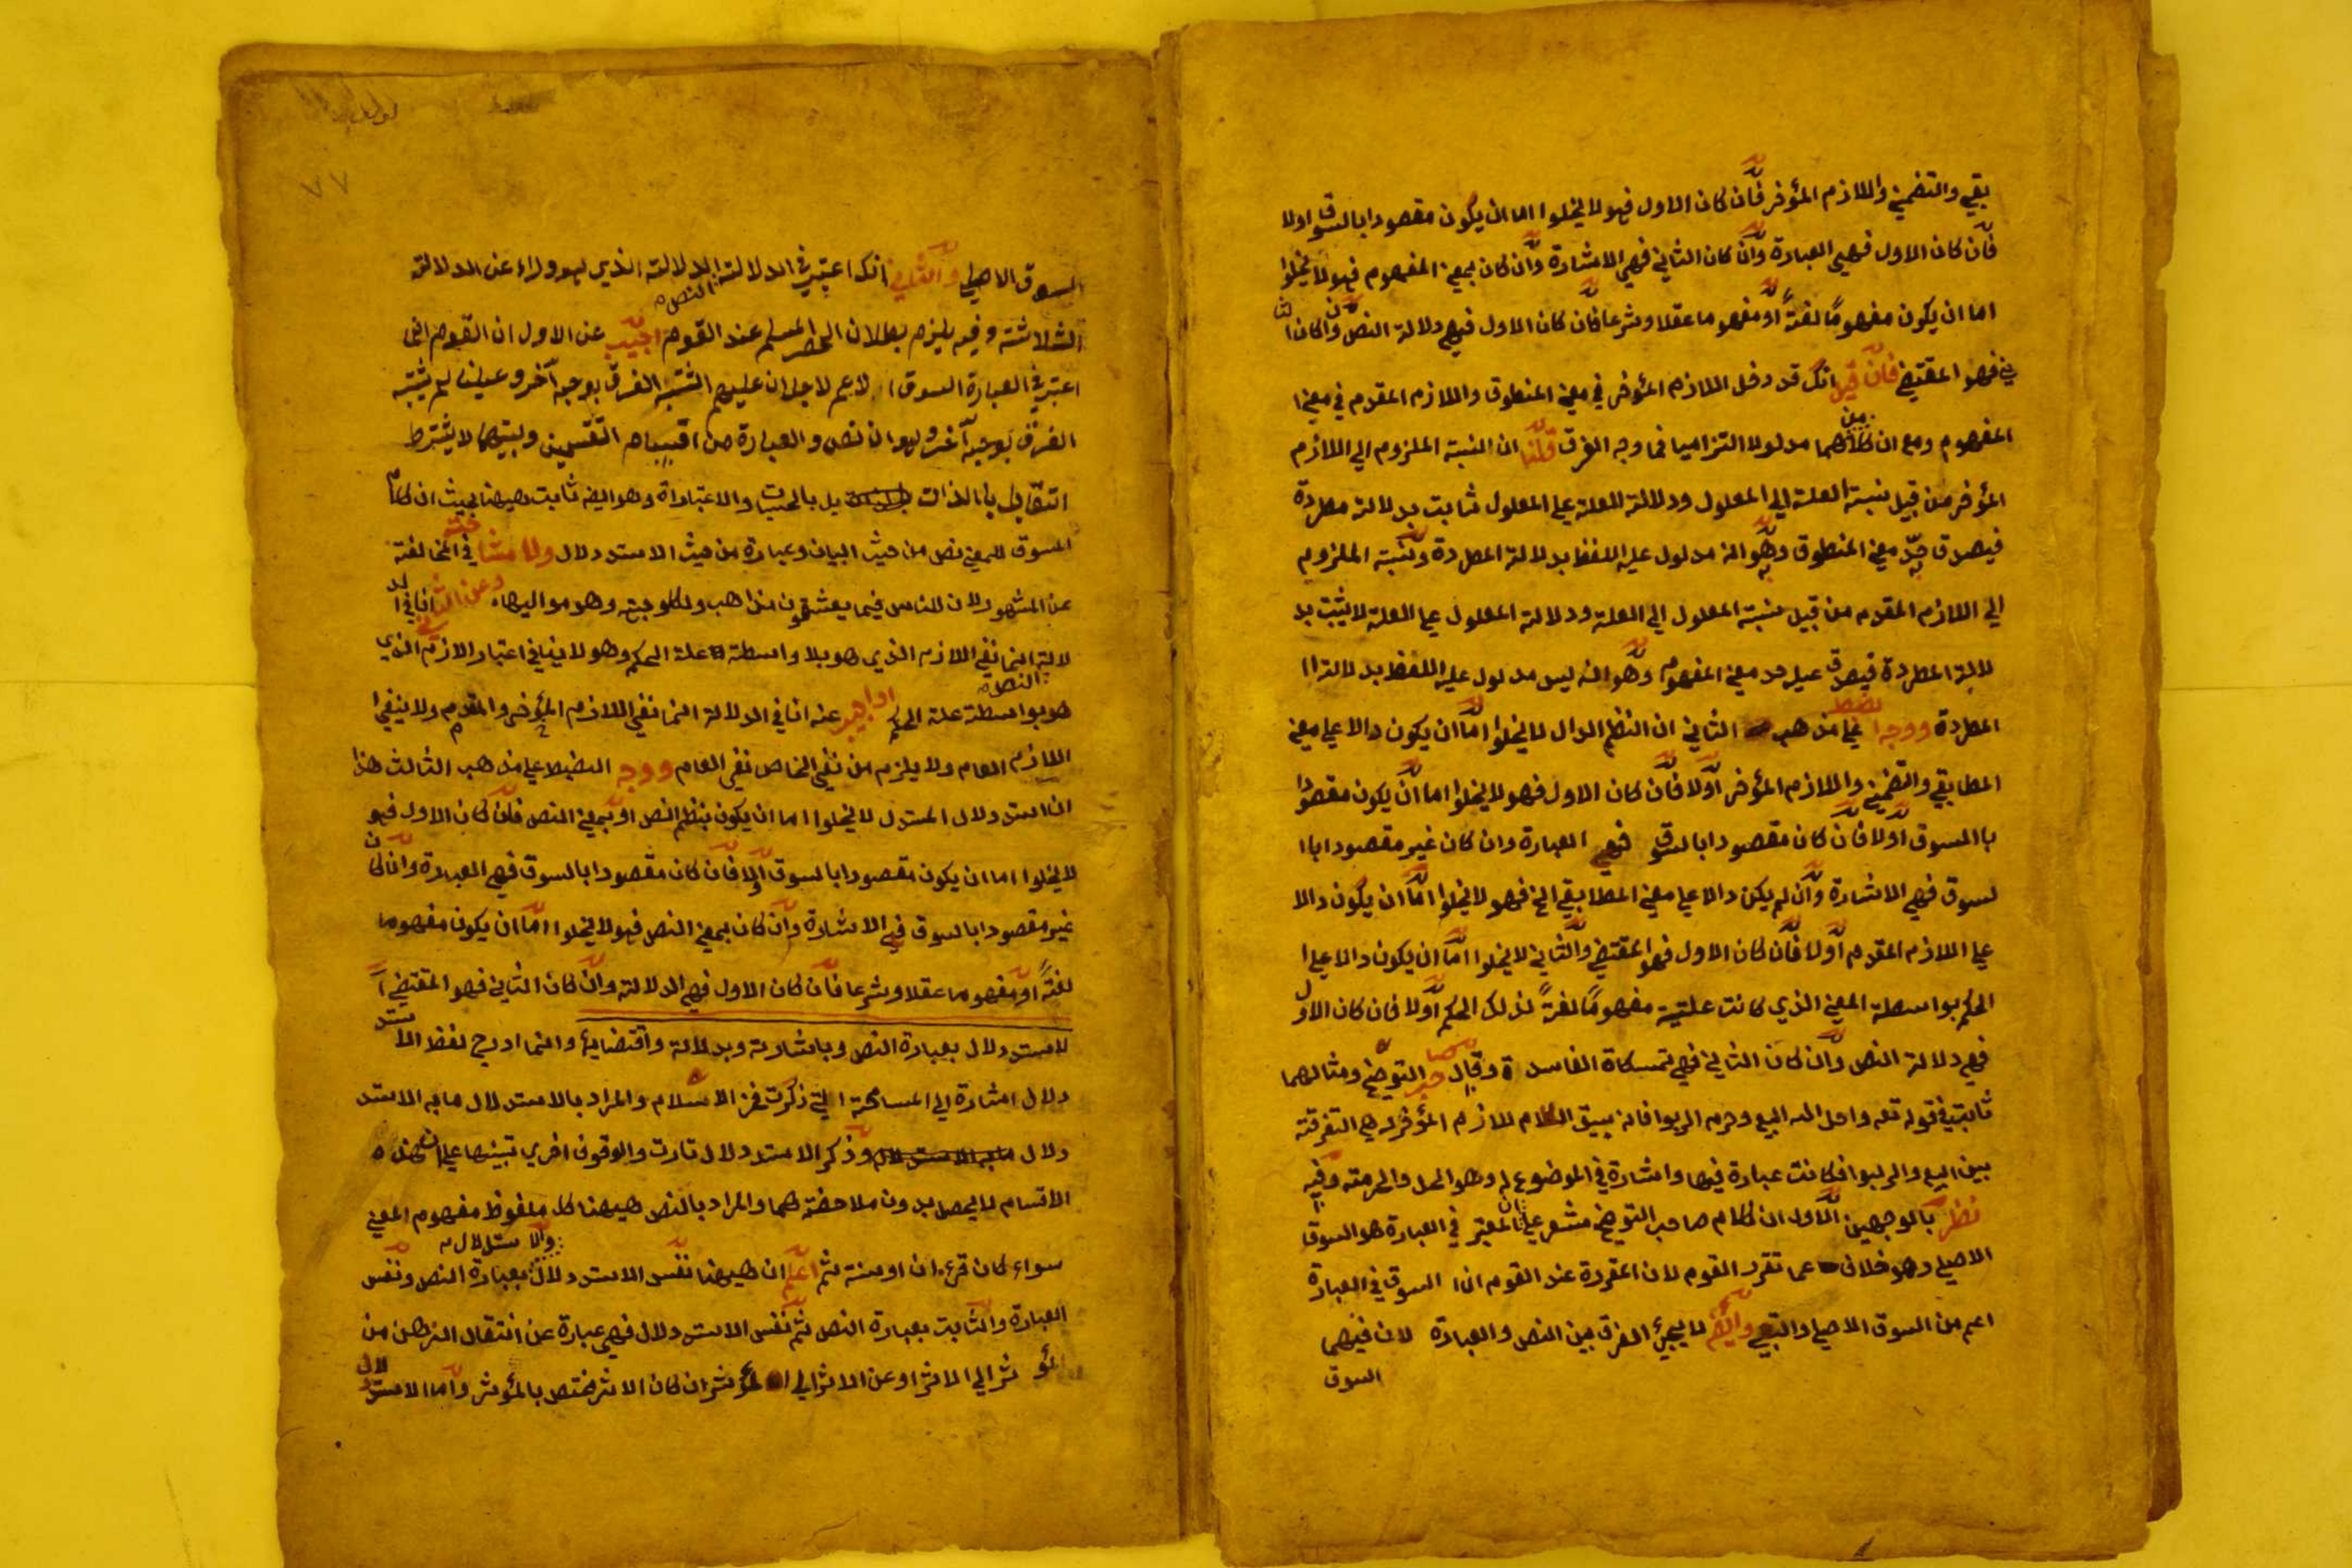 بقي والتضمني واللازم المؤخر فان كان الاول فهو لا يخلوا اما ان يكون مقصودا بالسوق اولا
فان كان الاول فهي العبارة وان كان الثاني فهي الاشارة وان كان بمعني المفهوم فهو لا يخلوا
اما ان يكون مفهومًا لغتةً او مفهوما عقلا وشرعا فان كان الاول فهي دلالة النص وان كان الثا
ني فهو المقتضي فان قيل انك قد دخل اللازم المؤخر في معني المنطوق واللازم المقدم في معني ا
المفهوم ومع ان كلاهما من مدلولا التزاميا فما وجه الفرق قلنا ان النسبة الملزوم الي اللازم
المؤخر من قبيل نسبة العلة الي المعلول ودلالة العلة علي المعلول ثابت بدلالة مطردة
فيصدق حد معني المنطوق وهو انه مدلول عليه اللفظ بدلالة المطردة ونسبة الملزوم
الي اللازم المقدم من قبيل نسبة المعلول الي العلة ودلالة المعلول علي العلة لا يثبت بد
لالة المطردة فيصدق عليه حد معني المفهوم وهو انه ليس مدلول عليه اللفظ بدلالة ا
المطردة ووجه ضبط علي مذهب الثاني ان النظم الدال لا يخلوا اما ان يكون دالا علي معني
المطابقي والتضمني واللازم المؤخر اولا فان كان الاول فهو لا يخلوا اما ان يكون مقصودا
با المسوق اولا فان كان مقصودا بالسوق فهي العبارة وان كان غير مقصودا با ا
لسوق فهي الاشارة وان لم يكن دالا علي معني المطابقي الخ فهو لا يخلوا اما ان يكون دالا
علي اللازم المقدم اولا فان كان الاول فهو المقتضي والثاني لا يخلوا اما ان يكون دالا علي ا
الحكم بواسطة المعني الذي كانت علتيه مفهومًا لغةً لذلك الحكم اولا فان كان الاول
فهي دلالة النص وان كان الثاني فهي تمسكاة الفاسدة وقال صاحب التوضيح ومثالهما
ثابت في قوله تعه واحل الله البيع وحرم الربوا فانه يسيق الكلام للازم المؤخر له هي التفرقة
بين البيع والربوا فكانت عبارة فيها واشارة في الموضوع له وهو الحل والحرمته وفيه
نظر بالوجهين الاول ان كلام صاحب التوضيح مشعر علي ان المعتبر في العبارة هو السوق
الاصلي وهو خلاف عما تقرر القوم لان المقررة عند القوم ان ا السوق في العبارة
اعم من السوق الاصلي والتبعي وايضًا لا يجيئ الفرق بين النص والعبارة لان فيهما
السوق
٧٧
السوق الاصلي والثاني انك اعتبر في الدلالة الدلالة الذي هو وراء عن الدلالة
النص
الثلاثته وفيه يلزم بطلان الحصر المسلم عند القوم اجيب عن الاول ان القوم انما
اعتبر في العبارة السوق الاعم لاجل ان عليهم الشتبه الفرق بوجه آخر وعلينا لم يشتبه
الفرق بوجه آخر وهو ان نص والعبارة من اقسام التقسمين وبينهما لا يشترط
التقابل با الذات بل بالحيثيات والاعتباراة وهو ايضا ثابت هيهنا بحيث ان كلام
المسوق للمعني نص من حيث البيان وعبارة من حيث الاستدلال ولا مشاحته في المخالفتة
عن المشهور لان للناس فيما يعشقون مذاهب ولكل وجهة وهو موليها وعن الثاني انا في الد
لالة انما نفي اللازم الذي هو بلا واسطة علة الحكم وهو لا ينافي اعتبار الازم الذي
النص
هو بواسطة علة الحكم او اجيب عنه انا في الدلالة انما نفي اللازم المؤخر والمقدم ولا ينفي ا
اللازم العام ولا يلزم من نفي الخاص نفي العام ووجه الضبط علي مذهب الثالث هذا
ان استدلال المستدل لا يخلوا اما ان يكون بنظم النص او بمعني النص فان كان الاول فهو
لا يخلوا اما ان يكون مقصودا بالسوق اولا فان كان مقصودا بالسوق فهي العبارة وان كان
غير مقصودا بالسوق فهي الاشارة وان كان بمعني النص فهو لا يخلوا اما ان يكون مفهوما
لغتًه او مفهوما عقلا وشرعا فان كان الاول فهي الدلالة وان كان الثاني فهو المقتضي ا
لاستدلال بعبارة النص وباشارته وبدلالة واقتضايه وانما ادرج لفظ الاستد
دلال اشارة الي المسامحة التي ذكرت فخر الاسلام والمراد بالاستدلال ما به الاستد
دلال وذكر الاستدلال تارت والوقوف اخري تبينها علي ان هذه
الاقسام لا يحصل بدون ملاحضتهما والمراد بالنص هيهنا كل ملفوظ مفهوم المعني
والاستدلال
سواء كان قرءان او سنة ثم اعلم ان هيهنا نفس الاستدلال بعبارة النص ونفس
العبارة والثابت بعبارة النص ثم نفس الاستدلال فهي عبارة عن انتقال الذهن من
المؤثر الي الاثر او عن الاثر الي المؤثر ان كان الاثر مختص بالمؤثر واما الاستدلال